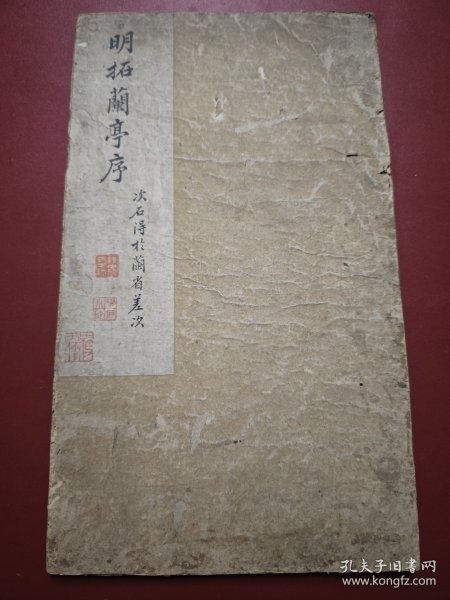 明拓蘭亭序
次石得於蘭省差次
孔夫子旧书网
www.kongfz.com